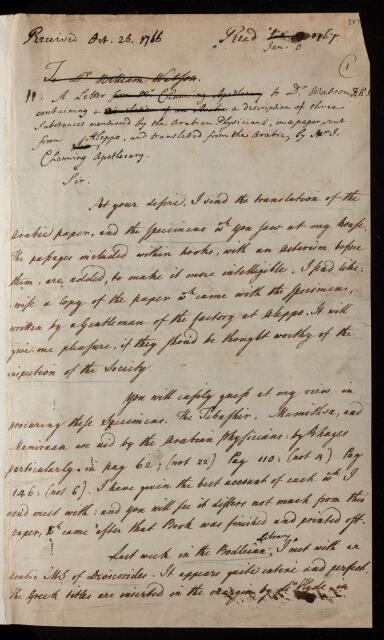 Received Oct. 26. 1766 Read 1767
Jan. 8
1
To Dr. William Watson.
II: A Letter from Mr Channing Apothecary to Dr. Watson F.R.S
containing a description of three
Substances mentioned by the Arabian Physicians, in a paper sent
from Aleppo, and translated from the Arabic, by Mr. J.
Channing Apothecary.
Sir.
At your desire, I send the translation of the
Arabic paper, and the specimens wch. you saw at my house.
The passages included within hooks, with an asterism before
them, are added, to make it more intelligible. I had like-
wise a copy of the paper wch. came with the specimens,
written by a Gentleman of the factory at Aleppo. It will
give me pleasure, if they shoud be thought worthy of the
inspection of the Society.
You will easily guess at my view in
procuring these Specimens. The Tebashir, Mamitsa, and
Mamiraan are used by the Arabian Physicians: by Rhazes
particularly in pag 62; (not 22) Pag 110: (not 9) Pag
146: (not 6). I have given the best account of each wch. I
coud meet with: and you will see it differs not much from this
paper, wch. came after that Book was finished and printed off.
Last week in the Bodleian Library I met with an
Arabic MS of Dioscorides. It appears quite entire and perfect.
The Greek titles are inserted in the margin by Dr. Hyde in